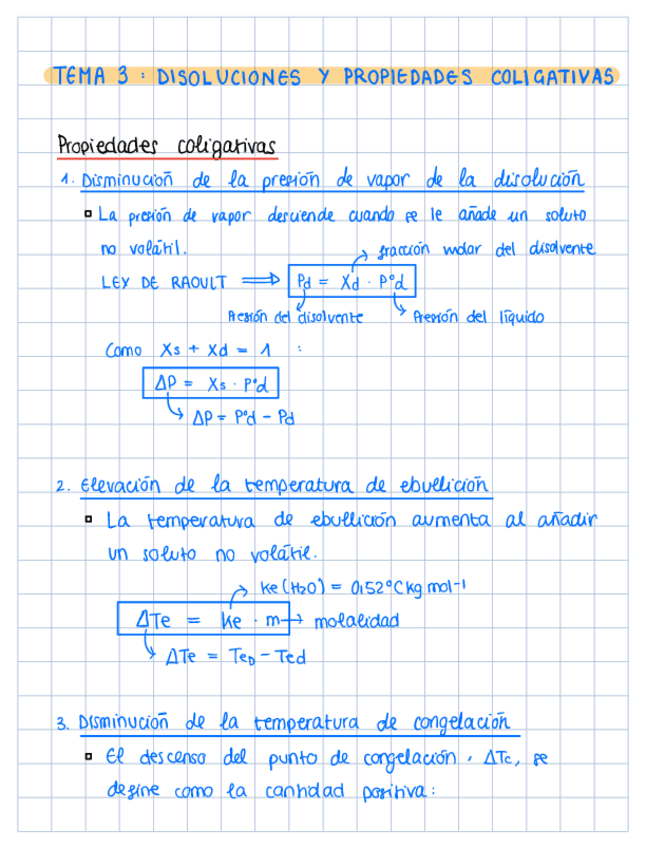 TEMA 3 : DISOLUCIONES Y PROPIEDADES COLIGATIVAS
Propiedades coligativas
1. Disminución de la presión de vapor de la disolución
▫ La presión de vapor desciende cuando se le añade un soluto
no volátil.
fracción molar del disolvente
LEY DE RAOULT ⟹ Pd = Xd · P°d
Presión del disolvente
Presión del líquido
Como Xs + Xd = 1 :
ΔP = Xs · P°d
ΔP = P°d - Pd
2. Elevación de la temperatura de ebullición
▫ La temperatura de ebullición aumenta al añadir
un soluto no volátil.
Ke (H2O) = 0,52°C kg mol-1
ΔTe = Ke · m → molalidad
ΔTe = TeD - Ted
3. Disminución de la temperatura de congelación
▫ El descenso del punto de congelación, ΔTc, se
define como la cantidad positiva: